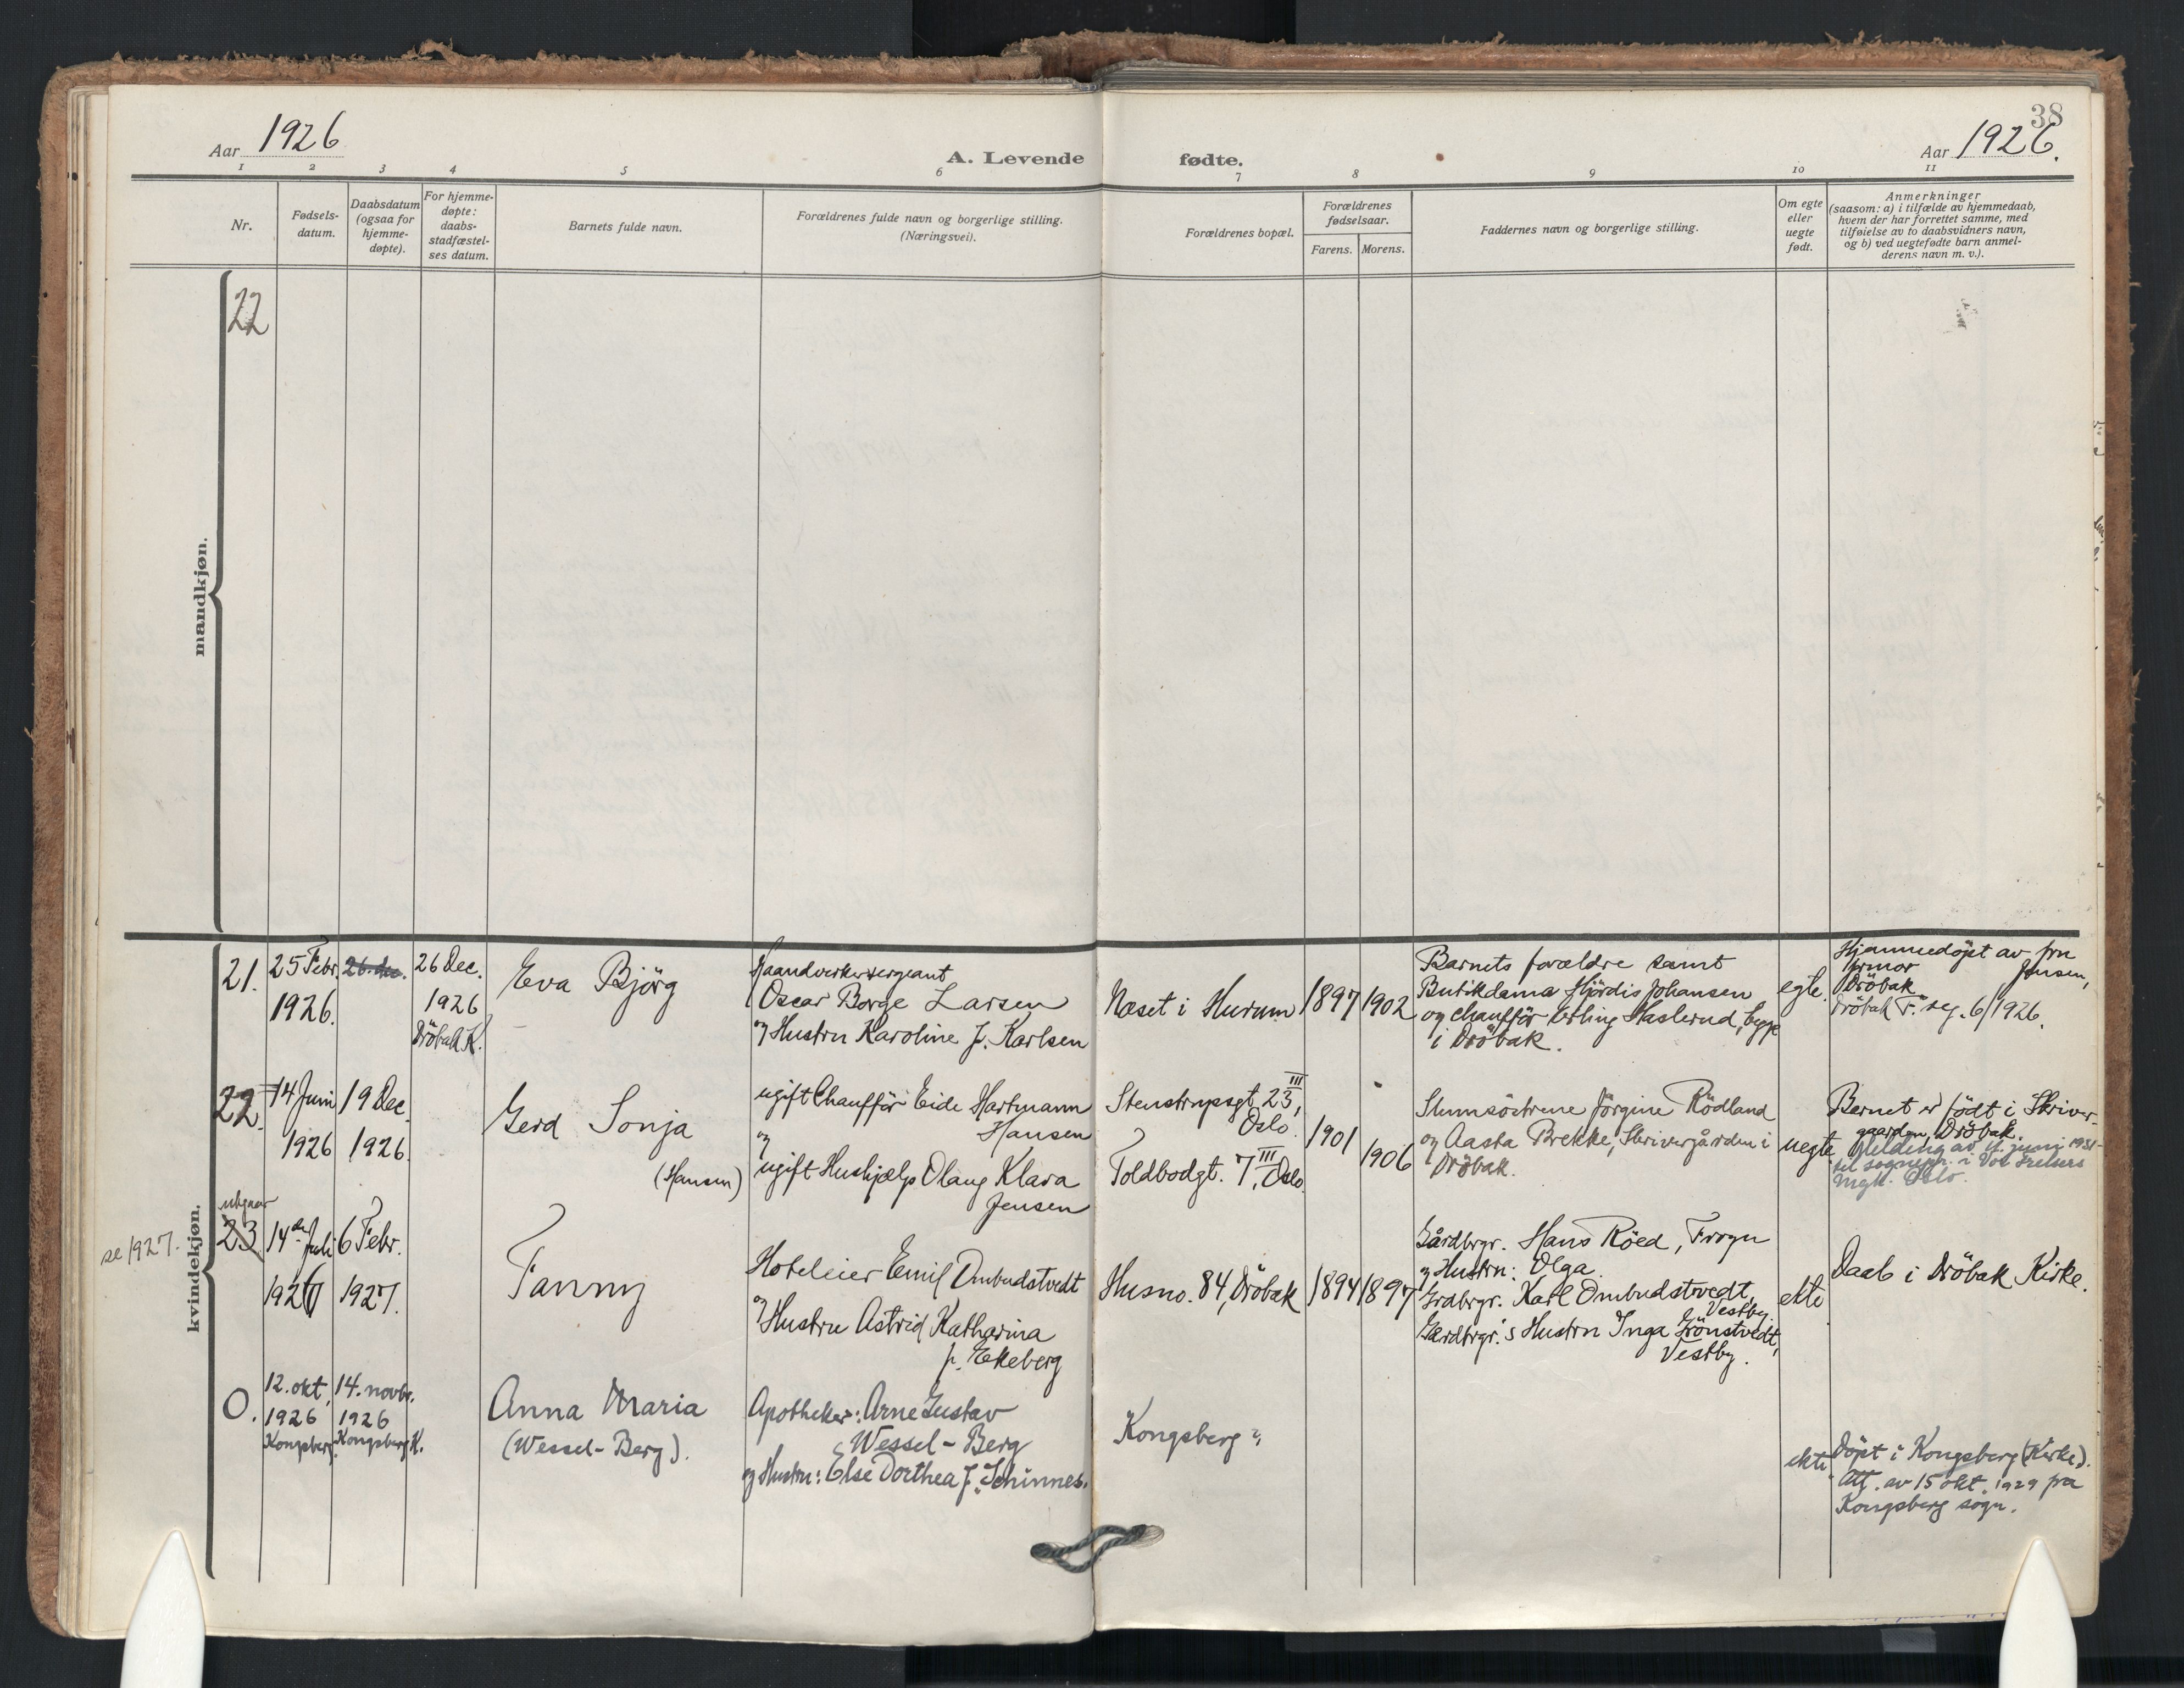 38
Aar 1926
A. Levende fødte.
Aar 1926.
1 2 3 4 5 6 7 8 9 10 11
Nr.
Fødsels-
datum.
Daabsdatum
(ogsaa for
hjemme-
døpte).
For hjemme-
døpte:
daabs-
stadfæstel-
ses datum.
Barnets fulde navn.
Forældrenes fulde navn og borgerlige stilling.
(Næringsvei).
Forældrenes bopæl.
Forældrenes
fødselsaar.
Farens. Morens.
Faddernes navn og borgerlige stilling.
Om egte
eller
uegte
født.
Anmerkninger
(saasom: a) i tilfælde av hjemmedaab,
hvem der har forrettet samme, med
tilføielse av to daabsvidners navn,
og b) ved uegtefødte barn anmel-
derens navn m. v.).
mandkjøn.
22
kvindekjøn.
21.
25 Febr.
1926.
26. dec.
26 Dec.
1926
Dröbak K.
Eva Bjørg
Haandverkersergeant
Oscar Borge Larsen
og Hustru Karoline f. Karlsen
Næset i Hurum
1897
1902
Barnets forældre samt
Butikdame Hjördis Johansen
og chaufför Erling Haslerud, begge
i Dröbak.
egte.
Hjemmedøpt av fru
Jensen,
Dröbak
Dröbak F. reg. 6/1926.
22.
14 Juni
1926
19 Dec.
1926.
Gerd Sonja
(Hansen)
ugift Chauffør Eide Hartmann
Hansen
og
ugift Hushjælp Olaug Klara
Jensen
Stenstrupsgt. 23, III
Oslo.
Toldbodgt. 7, III Oslo.
1901
1906
Slumsöstrene Jörgine Rödland
og Aasta Brekke, Skrivergården i
Dröbak.
uegte
Barnet er født i Skriver-
gaarden, Dröbak.
Melding av 17. juni 1931
til sognepr. i Vor Frelsers
mgh. Oslo.
se 1927.
utgaar
23
14de Juli
1926
6 Febr.
1927.
Fanny
Hoteleier Emil Ombudstvedt
og Hustru Astrid Katharina
f. Ekeberg
Husno. 84, Dröbak
1894
1897
Gårdbrgr. Hans Röed, Frogn
og Hustru: Olga.
Grdbrgr. Karl Ombudstvedt,
Vestby.
Gardbrgr.'s Hustru Inga Grönstvedt,
Vestby.
ekte
Daab i Dröbak Kirke.
0.
12. okt.
1926
Kongsberg.
14. novbr.
1926
Kongsberg K.
Anna Maria
(Wessel-Berg).
Apotheker: Arne Gustav
Wessel-Berg
og Hustru: Else Dorthea f. Schinnes.
Kongsberg
ekte
Døpt i Kongsberg (Kirke).
Att. av 15 okt. 1929 fra
Kongsberg sogn.